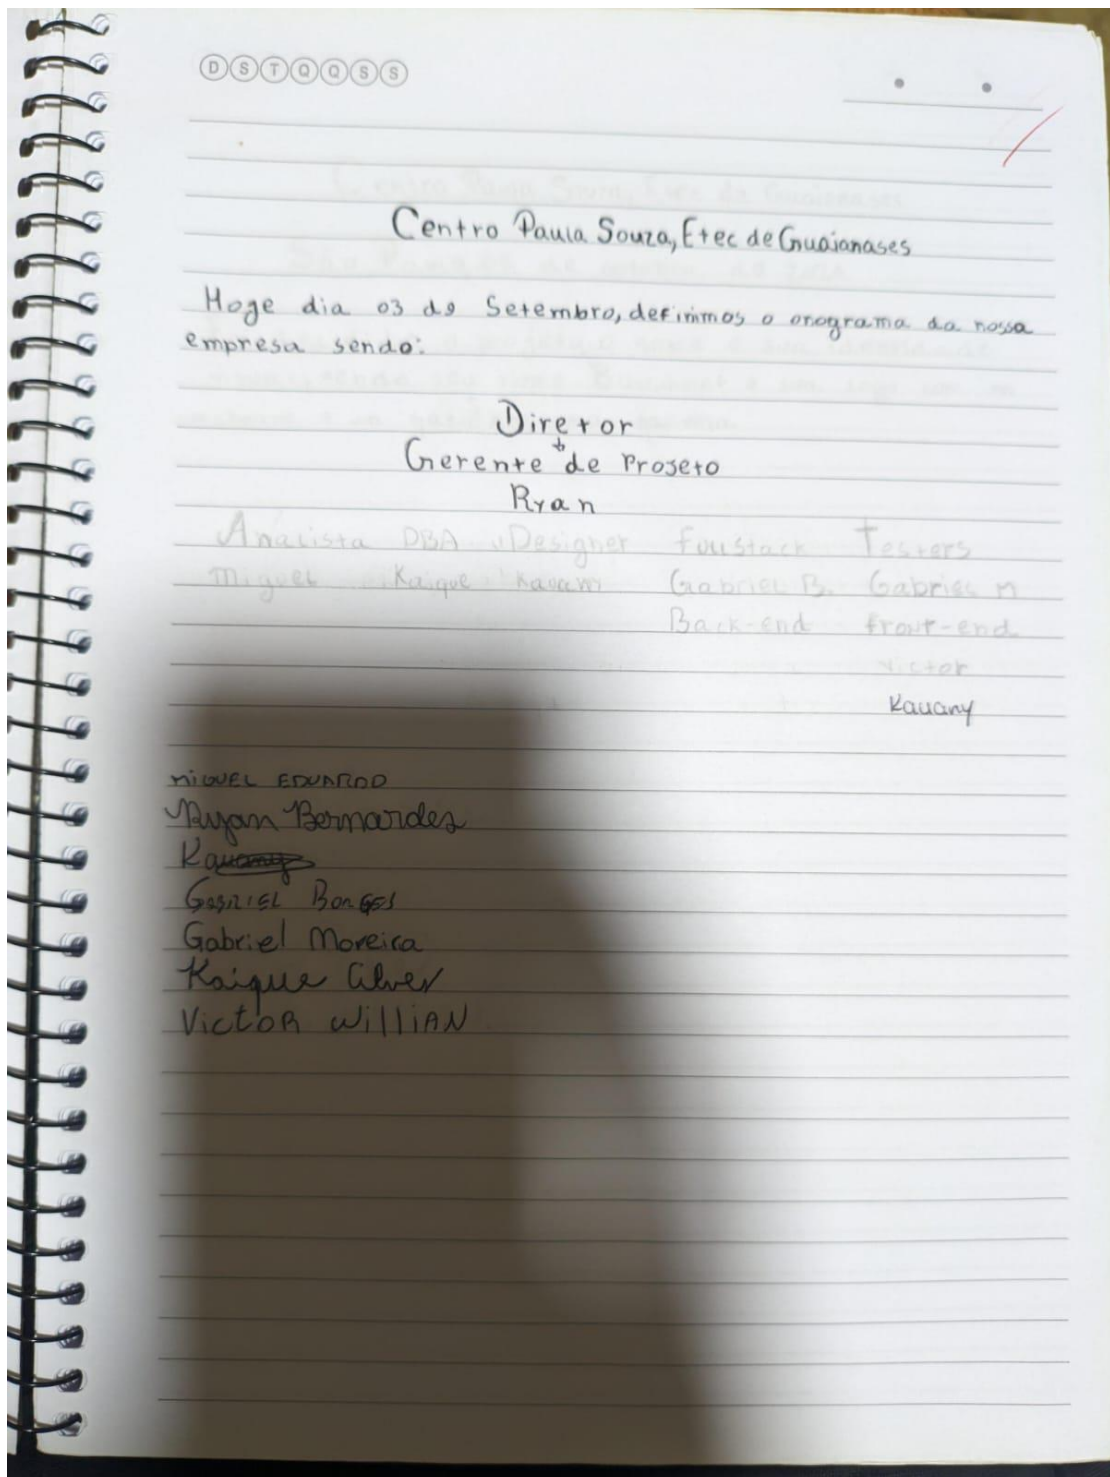 D S T Q Q S S
Centro Paula Souza, Etec de Guaianases
Hoge dia 03 de Setembro, definimos o onograma da nossa
empresa sendo:
Diretor
Gerente de Projeto
Ryan
Analista DBA Designer Fullstack Testers
Miguel Kaique Kauany Gabriel B. Gabriel M
Back-end front-end
Victor
Kauany
MIGUEL EDUARDO
Ryan Bernardes
Kauany
GABRIEL BORGES
Gabriel Moreira
Kaique Alves
VICTOR WilliAN